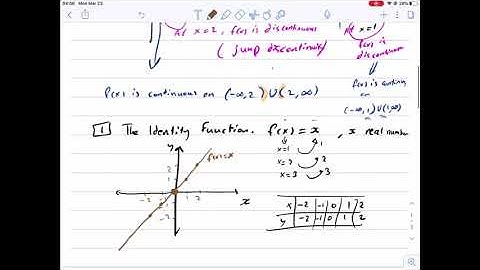 At x=2, f(x) is discontinuous
(jump discontinuity)
at x=1
f(x) is
discontinuous
f(x) is continuous on (-∞,2) U (2,∞)
f(x) is
on
(-∞,1) U (1,∞)
1 The Identity Function. f(x) = x, x real number
x=1 1
x=2 2
x=3 3
y
f(x)=x
2
1
-2 -1 1 2
-1
-2
x
x -2 -1 0 1 2
y -2 -1 0 1 2